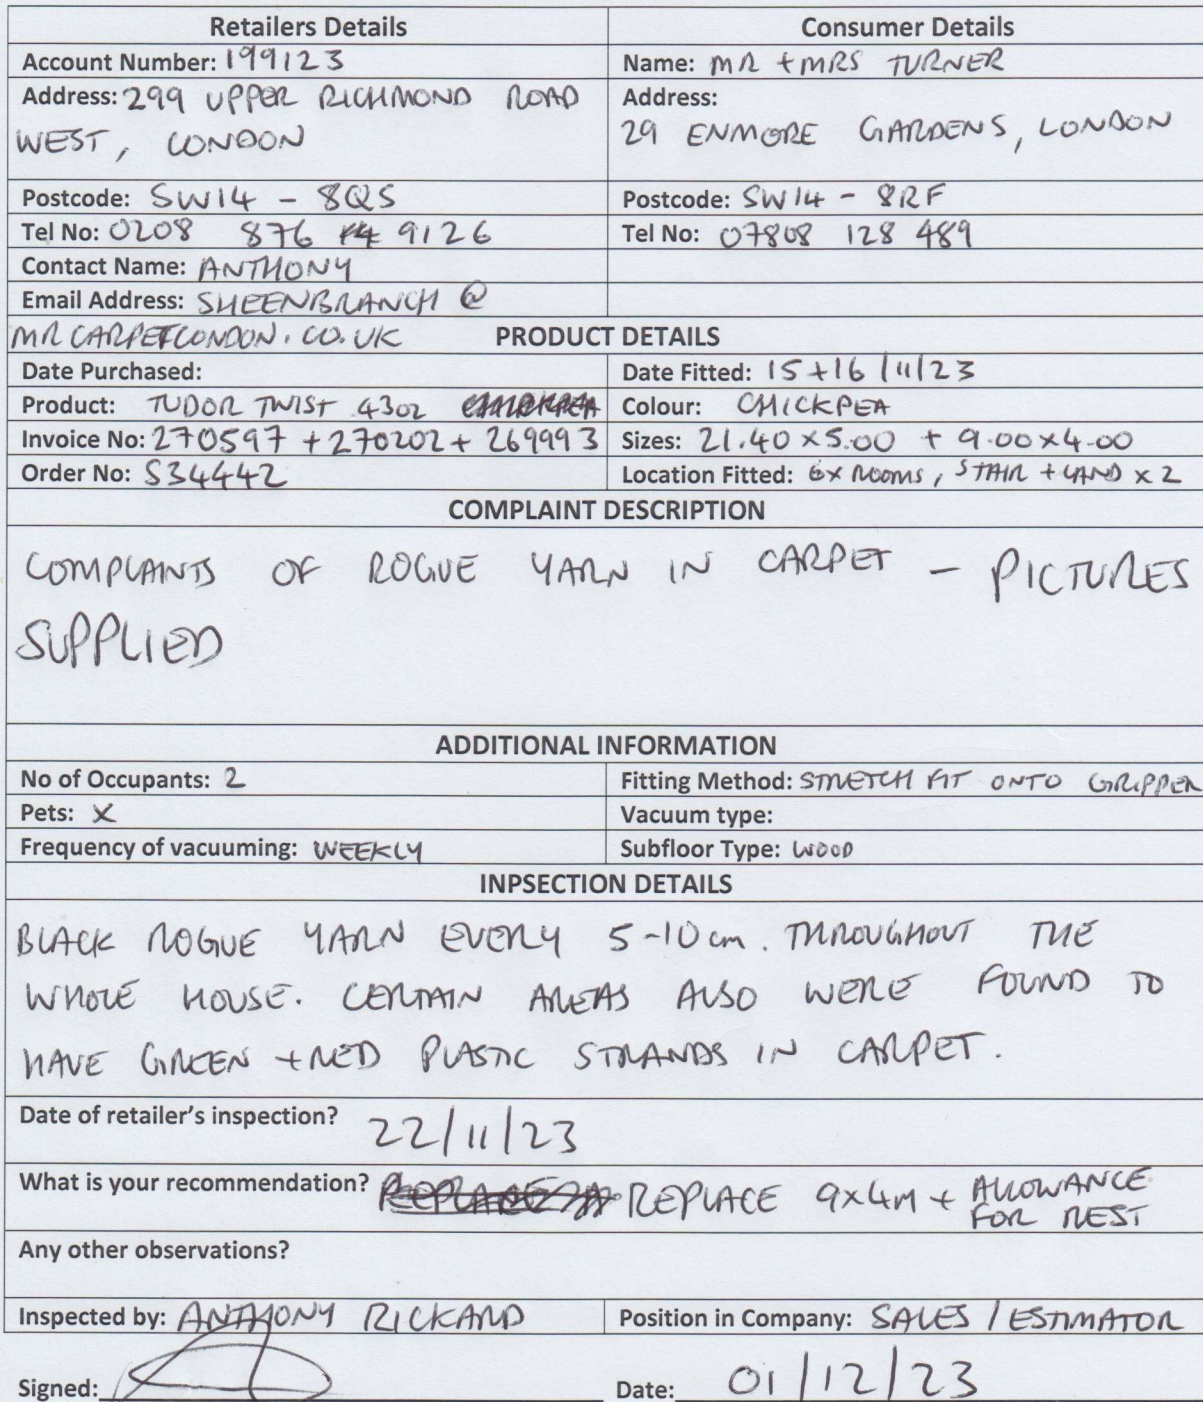 Retailers Details Consumer Details
Account Number: 199123 Name: MR + MRS TURNER
Address: 299 UPPER RICHMOND ROAD Address:
WEST, LONDON 29 ENMORE GARDENS, LONDON
Postcode: SW14 - 8QS Postcode: SW14 - 8RF
Tel No: 0208 876 9126 Tel No: 07808 128 489
Contact Name: ANTHONY
Email Address: SHEENBRANCH @
MRCARPETLONDON.CO.UK PRODUCT DETAILS
Date Purchased: Date Fitted: 15+16/11/23
Product: TUDOR TWIST 43oz Colour: CHICKPEA
Invoice No: 270597 + 270202 + 269993 Sizes: 21.40 x 5.00 + 9.00 x 4.00
Order No: S34442 Location Fitted: 6x ROOMS, STAIR + LAND x 2
COMPLAINT DESCRIPTION
COMPLAINTS OF ROGUE YARN IN CARPET - PICTURES
SUPPLIED
ADDITIONAL INFORMATION
No of Occupants: 2 Fitting Method: STRETCH FIT ONTO GRIPPER
Pets: X Vacuum type:
Frequency of vacuuming: WEEKLY Subfloor Type: WOOD
INPSECTION DETAILS
BLACK ROGUE YARN EVERY 5-10cm. THROUGHOUT THE
WHOLE HOUSE. CERTAIN AREAS ALSO WERE FOUND TO
HAVE GREEN + RED PLASTIC STRANDS IN CARPET.
Date of retailer's inspection? 22/11/23
What is your recommendation? REPLACE 9x4m + ALLOWANCE
FOR REST
Any other observations?
Inspected by: ANTHONY RICKARD Position in Company: SALES / ESTIMATOR
Signed: Date: 01/12/23